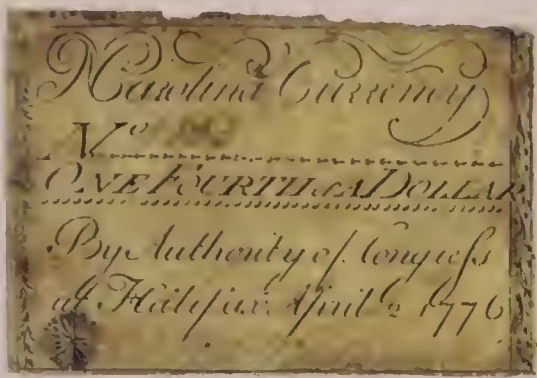 N Carolina Currency
No
ONE FOURTH of A DOLLAR
By Authority of Congreſs
at Halifax April 2 1776